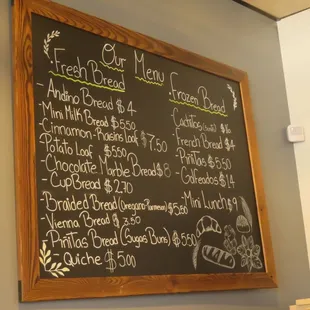 Our Menu
Fresh Bread
- Andino Bread $4
- Mini Milk Bread $5.50
- Cinnamon-Raisins Loaf $7.50
- Potato Loaf $5.50
- Chocolate Marble Bread $8
- Cup Bread $2.70
- Braided Bread (Oregano-Parmesan) $5.50
- Vienna Bread $3.50
- Piñitas Bread (Sugar Buns) $5.50
- Quiche $5.00
Frozen Bread
- Cachitos $16
- French Bread $4
- Piñitas $5.50
- Golfeados $14
- Mini Lunch $9